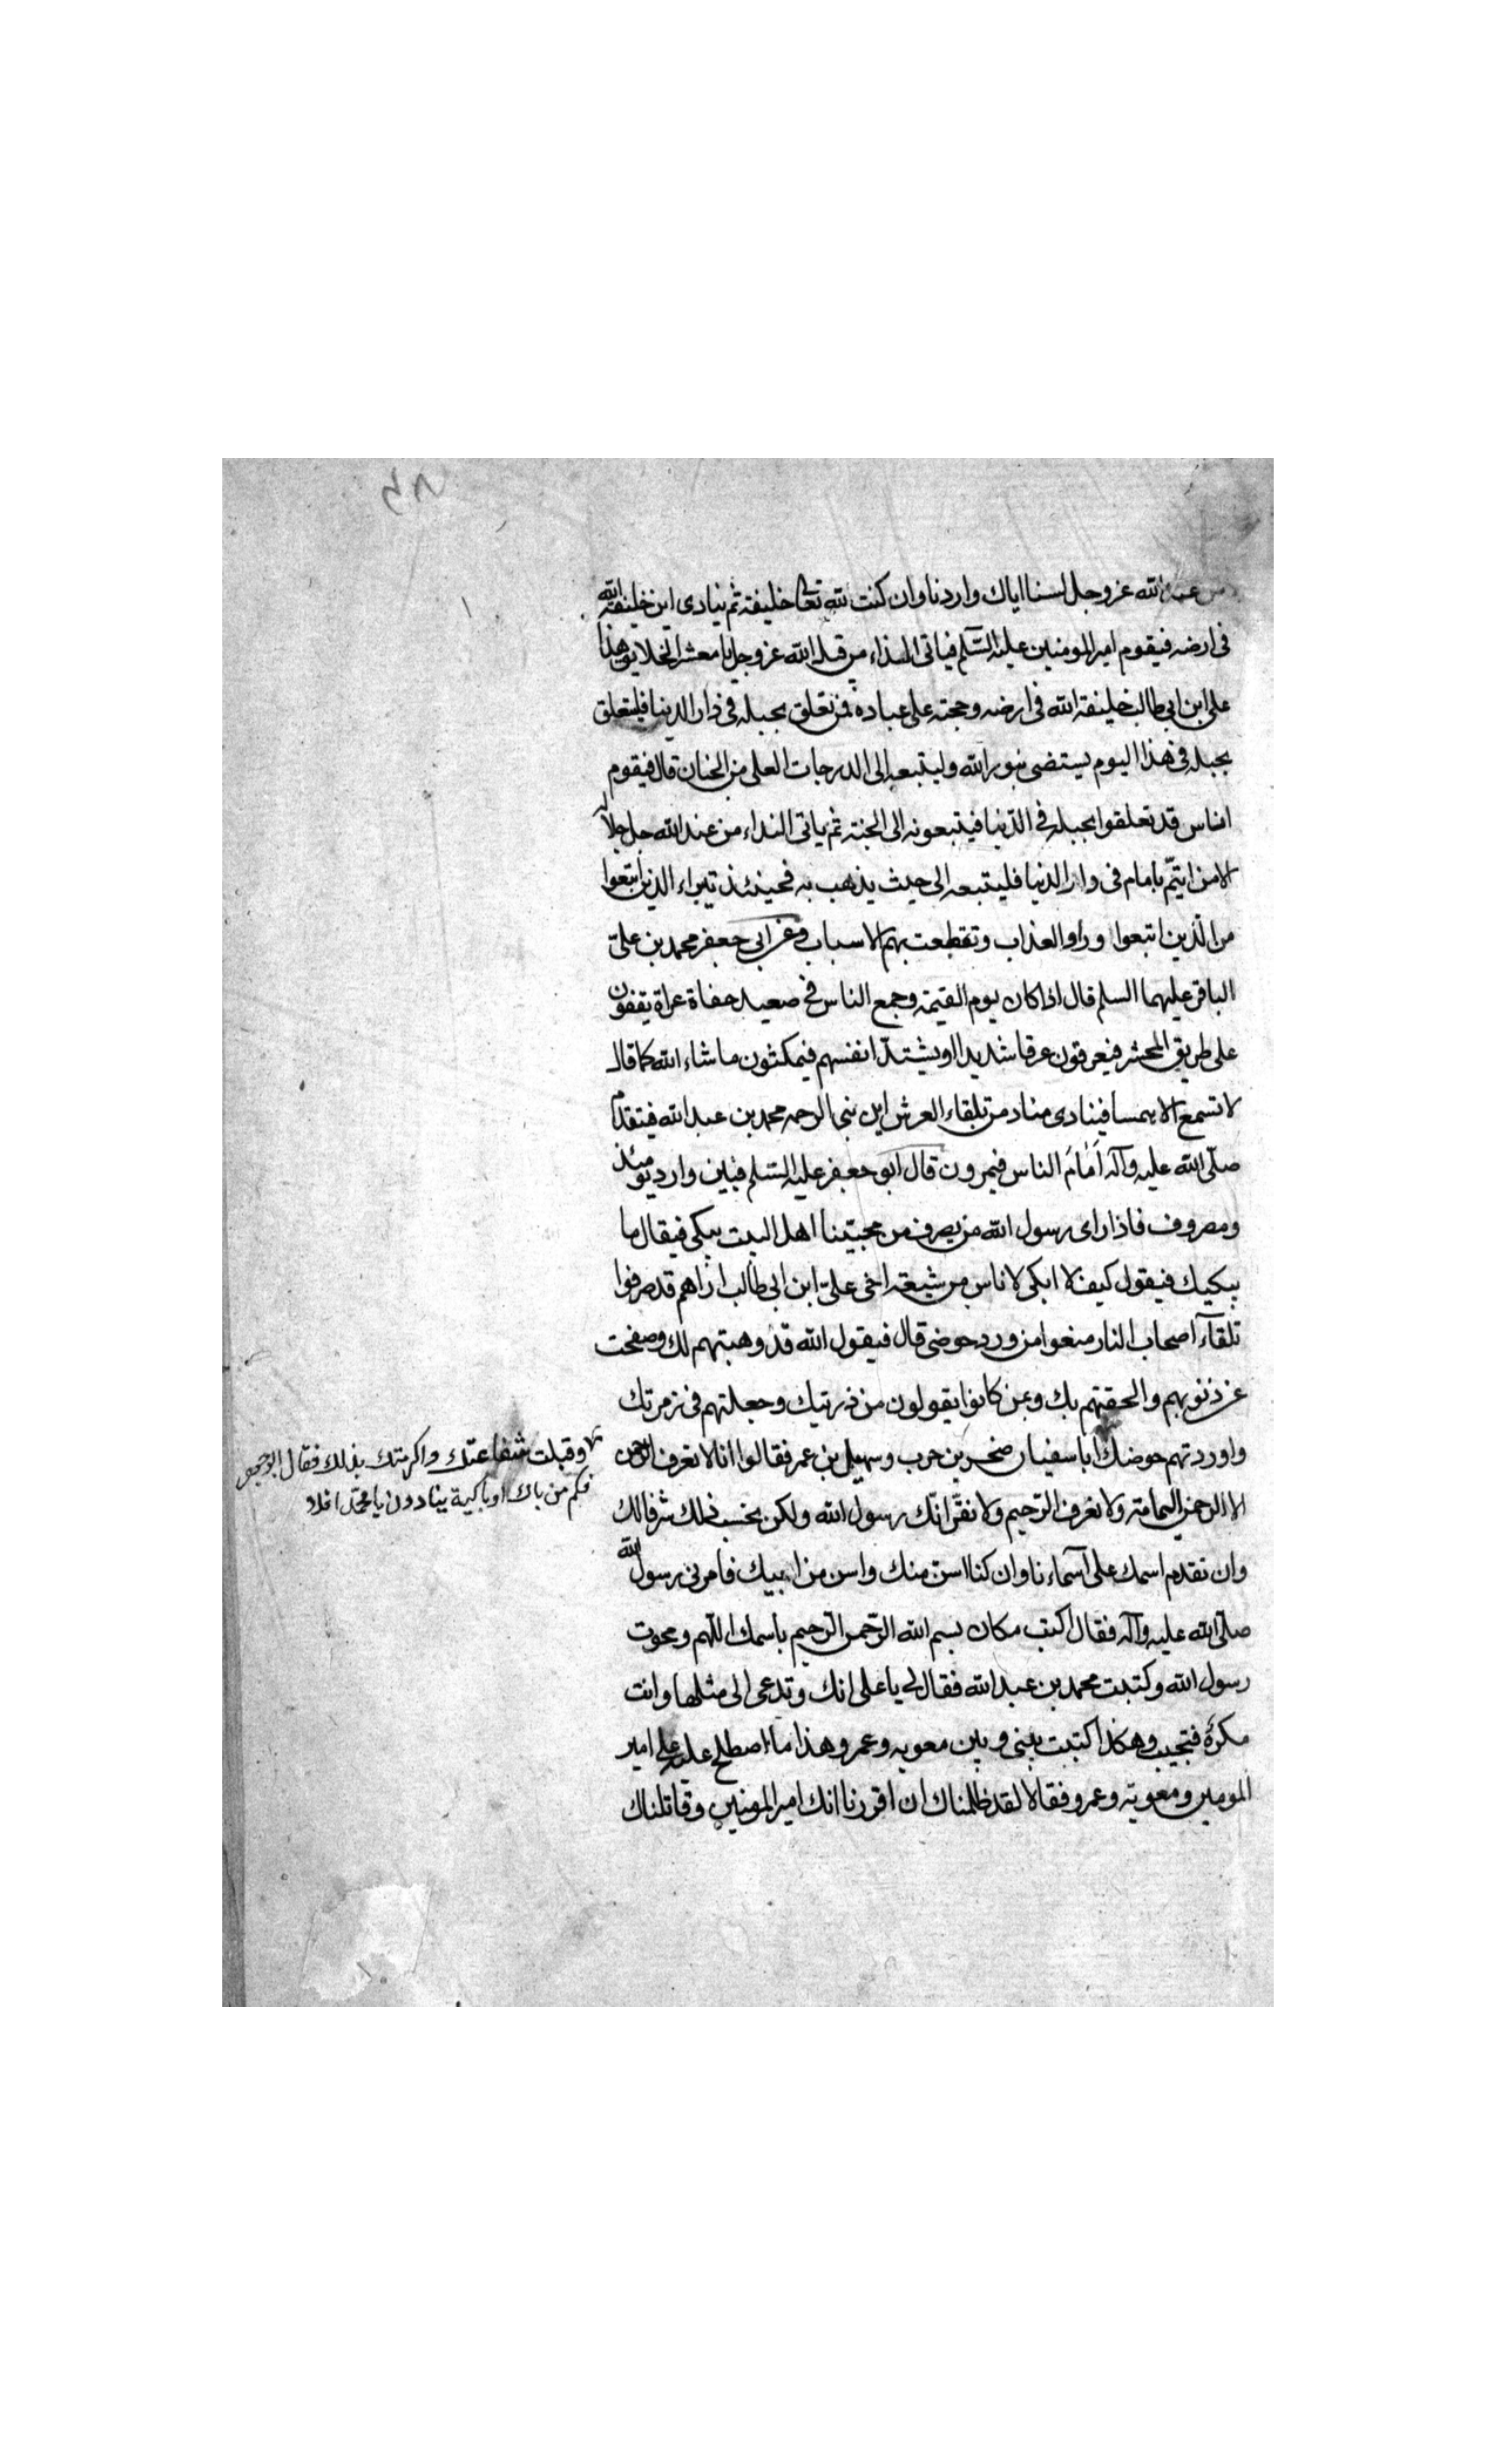 من عند الله عز وجل لسنا اياك واردنا وان كنت لله تعالى خليفة ثم ينادى اين خليفة الله
فى ارضه فيقوم امير المومنين عليه السلم فياتى النداء من قبل الله عز وجل يا معشر الخلايق هذا
على ابن ابى طالب خليفة الله فى ارضه وحجته على عباده فمن تعلق بحبله فى دار الدنيا فليتعلق
بحبله فى هذا اليوم يستضى بنور الله وليتبعه الى الدرجات العلى من الجنان قال فيقوم
اناس قد تعلقوا بحبله فى الدنيا فيتبعونه الى الجنة ثم ياتى النداء من عند الله جل جلاله
الا من ايتم بامام فى دار الدنيا فليتبعه الى حيث يذهب به فحينئذ تبراء الذين اتبعوا
من الذين اتبعوا وراو العذاب وتقطعت بهم الاسباب وعن ابى جعفر محمد بن على
الباقر عليهما السلم قال اذا كان يوم القيمة وجمع الناس فى صعيد حفاة عراة يقفون
على طريق المحشر فيعرقون عرقا شديدا ويشتد انفسهم فيمكثون ما شاء الله كما قال
لا تسمع الا همسا فينادى مناد من تلقاء العرش اين نبى الرحمه محمد بن عبد الله فيتقدم
صلى الله عليه وآله أمام الناس فيمرون قال ابو جعفر عليه السلم فبين وارد يومئذ
ومصروف فاذا راى رسول الله من يصرف من محبينا اهل البيت يبكى فيقال ما
يبكيك فيقول كيف لا ابكى لاناس من شيعة اخى على ابن ابى طالب اراهم قد صرفوا
تلقآء اصحاب النار منعوا من ورد حوضى قال فيقول الله قد وهبتهم لك وصفحت
عن ذنوبهم والحقتهم بك وبمن كانوا يقولون من ذريتك وجعلتهم فى زمرتك
واوردتهم حوضك ابا سفيان صخر بن حرب وسهيل بن عمر فقالوا انا لا نعرف الرحمن
الا الرحمن اليمامة ولا نعرف الرحيم ولا نقر انك رسول الله ولكن نحسب ذلك شرفا لك
وان نقدم اسمك على اسماءنا وان كنا اسن منك واسن من ابيك فامرنى رسول الله
صلى الله عليه وآله فقال اكتب مكان بسم الله الرحمن الرحيم باسمك اللهم ومحوت
رسول الله وكتبت محمد بن عبد الله فقال لى يا على انك وتدعى الى مثلها وانت
مكره فتجيب وهكذا كتبت بينى وبين معويه وعمرو هذا ما اصطلح عليه على امير
المومنين ومعوية وعمرو فقالا لقد ظلمناك ان اقررنا انك امير المومنين وقاتلناك
وقبلت شفاعتك واكرمتك بذلك فقال ابو جعفر
فكم من باك او باكية ينادون يا محمد